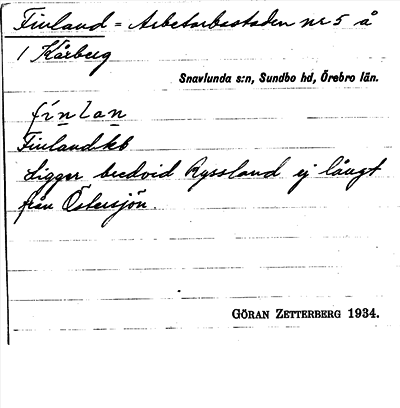 Finland = Arbetarbostaden nr 5 å
1 Kårberg
Snavlunda s:n, Sundbo hd, Örebro län.
finlan
Finland kb
Ligger bredvid Ryssland ej långt
från Östersjön.
GÖRAN ZETTERBERG 1934.